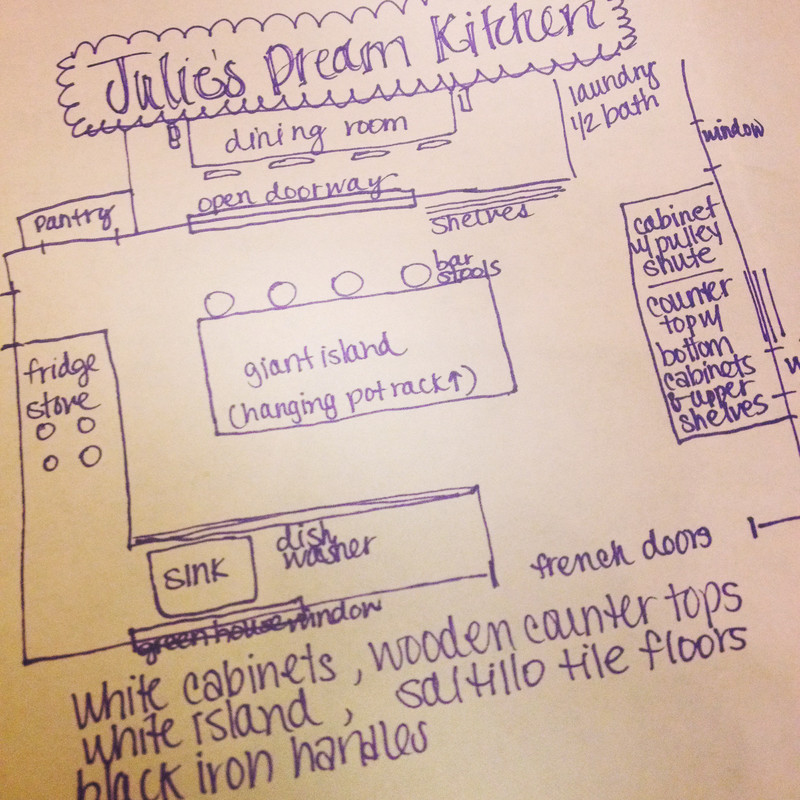 Julie's Dream Kitchen
laundry
1/2 bath
dining room
window
open doorway
pantry
shelves
cabinet
w/ pulley
shute
bar
stools
counter
top w/
bottom
cabinets
& upper
shelves
giant island
(hanging pot rack↑)
fridge
stove
dish
washer
sink
french doors
green house window
white cabinets, wooden counter tops
white island, saltillo tile floors
black iron handles